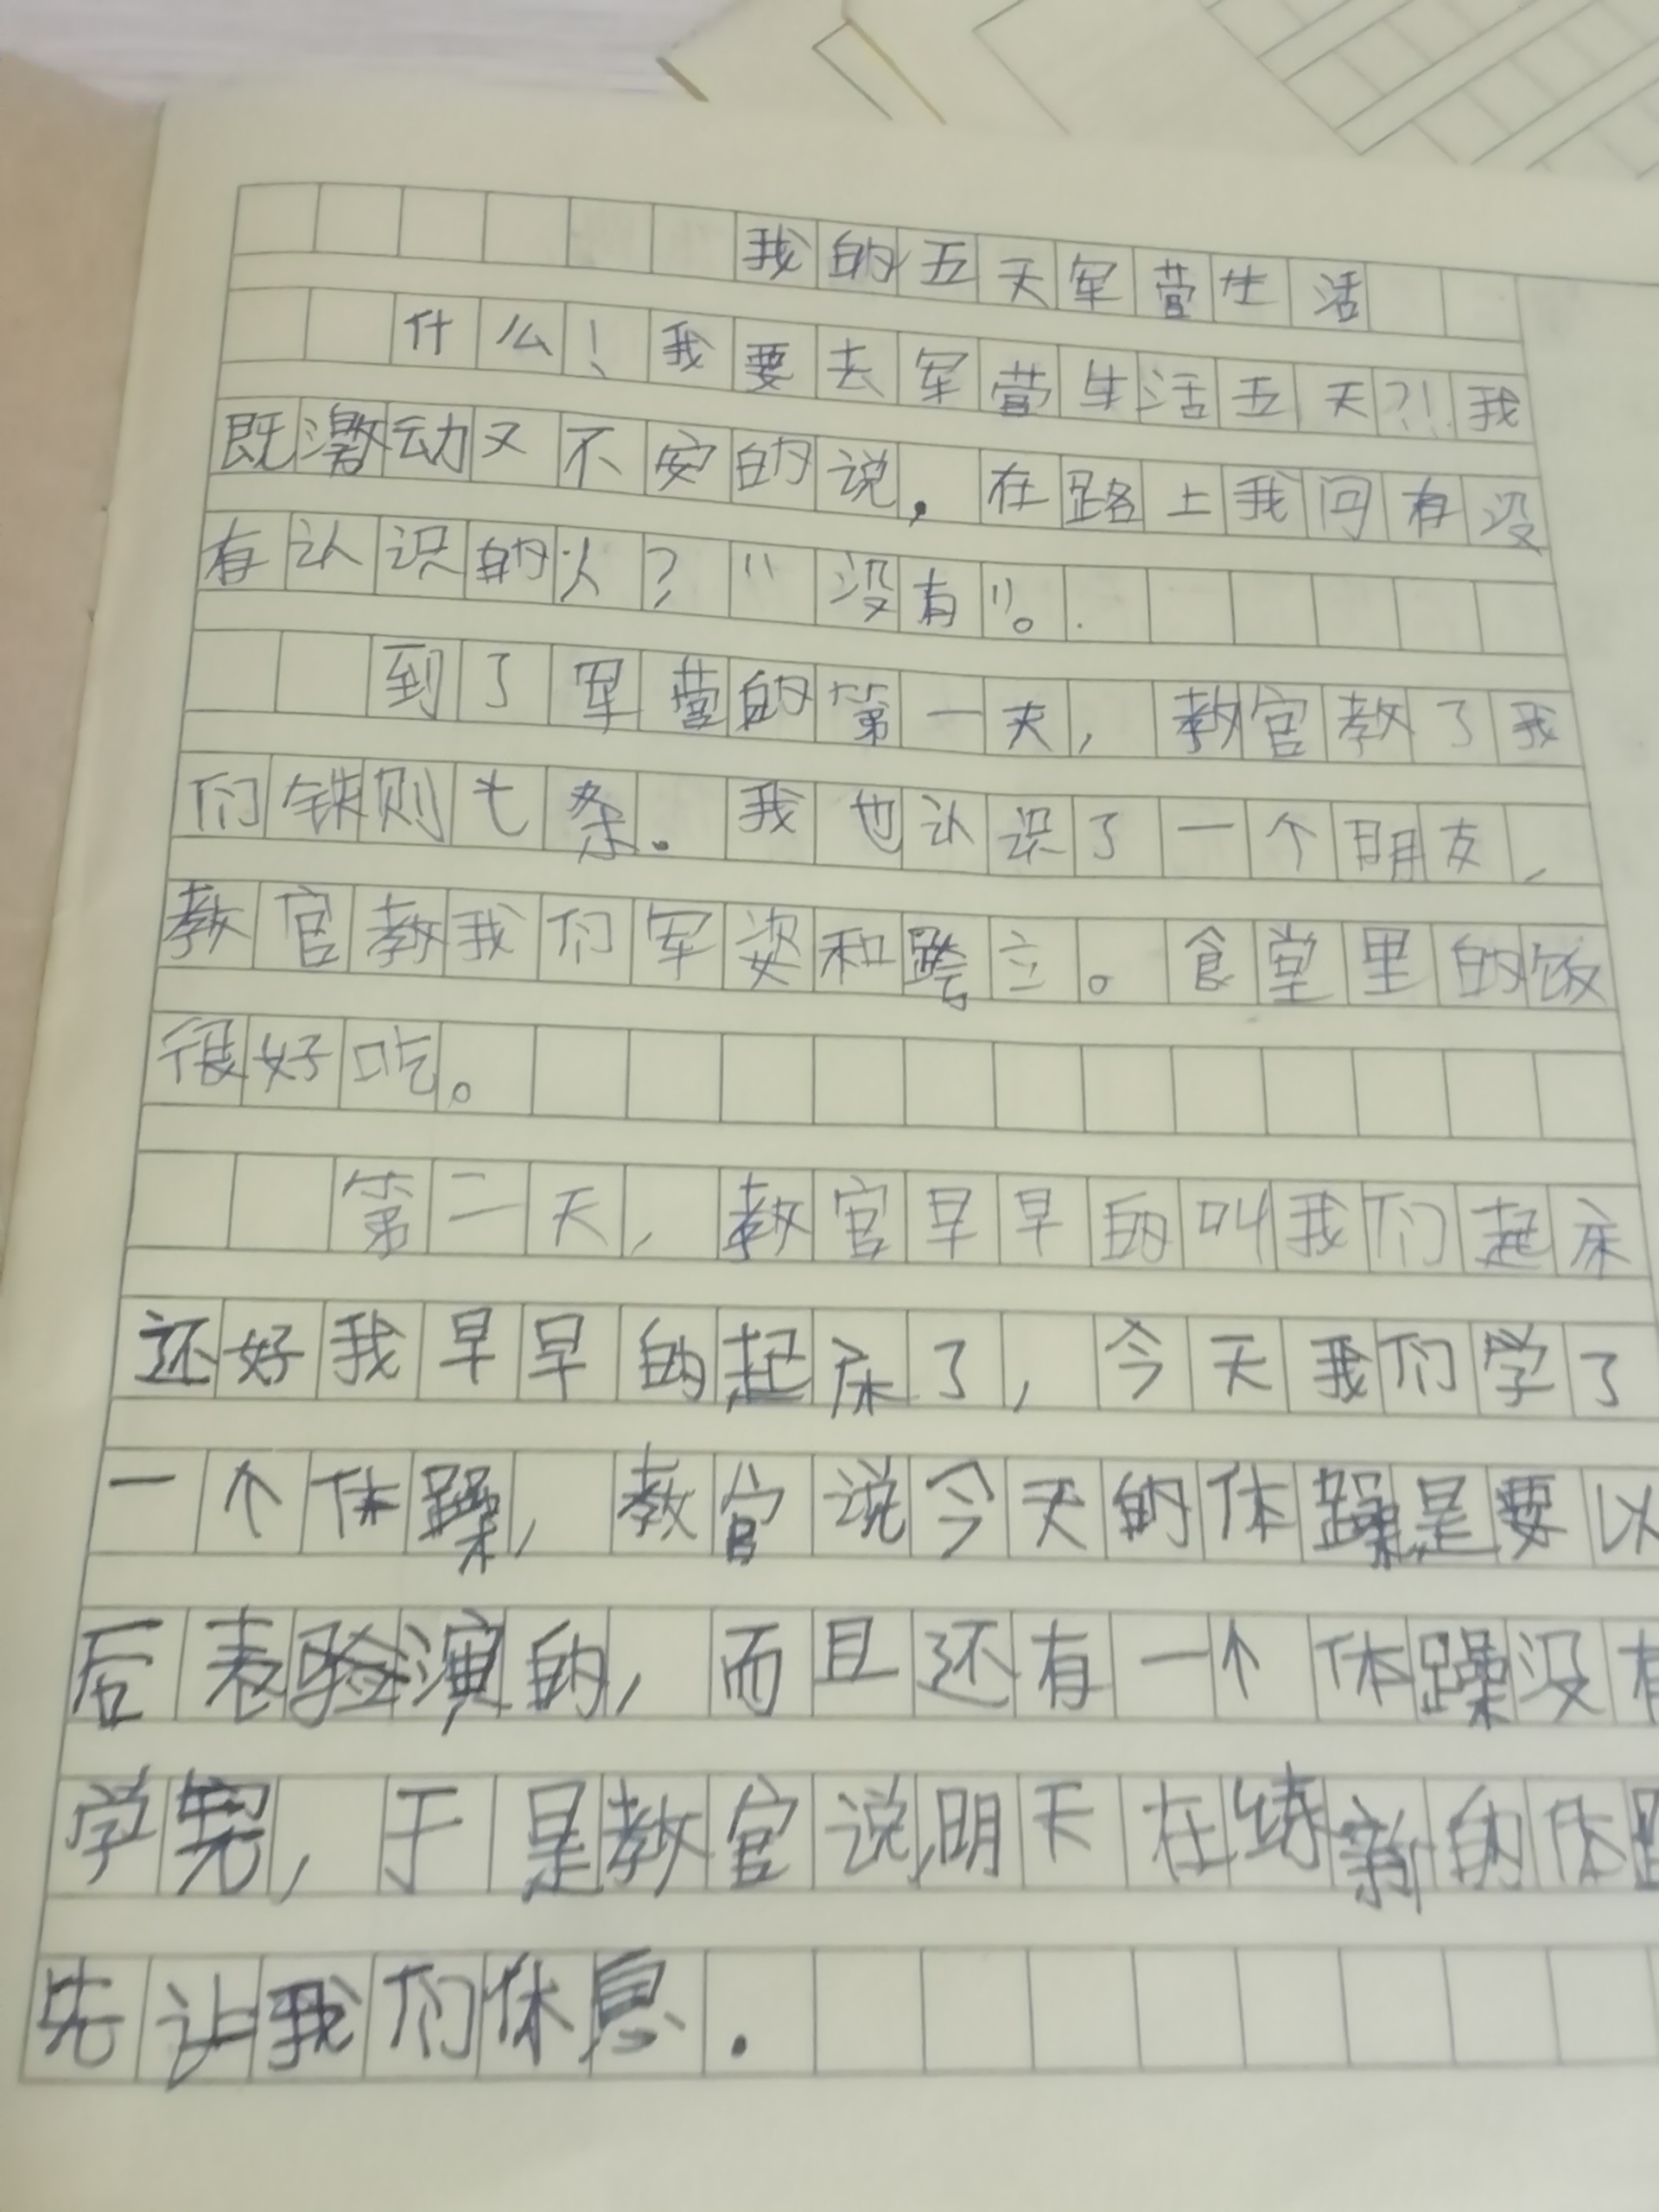 我的五天军营生活
什么！我要去军营生活五天？！我
既激动又不安的说，在路上我问有没
有认识的人？“没有”。
到了军营的第一天，教官教了我
们铁则七条。我也认识了一个朋友，
教官教我们军姿和跨立。食堂里的饭
很好吃。
第二天，教官早早的叫我们起床
还好我早早的起床了，今天我们学了
一个体躁，教官说今天的体躁是要以
后表验演的，而且还有一个体躁没有
学完，于是教官说明天在练新的体
先让我们休息.